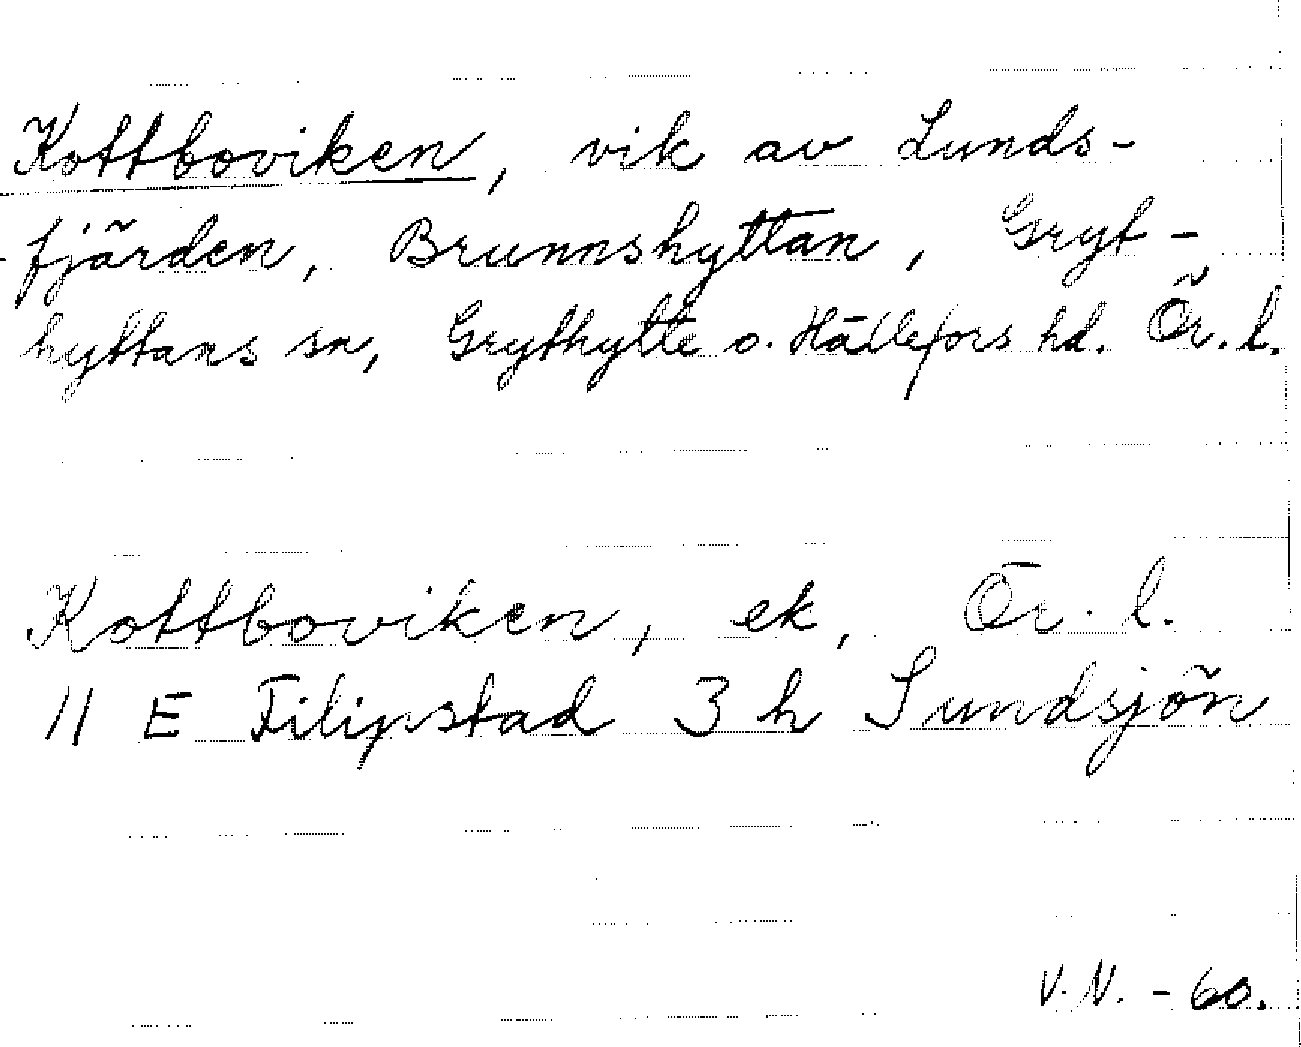 Kottboviken, vik av Lunds-
fjärden, Brunnshyttan, Gryt-
hyttans sn, Grythytte o. Hällefors hd. Ör. l.
Kottboviken, ek, Ör. l.
11 E Filipstad 3 h Sundsjön
V.N. - 60.